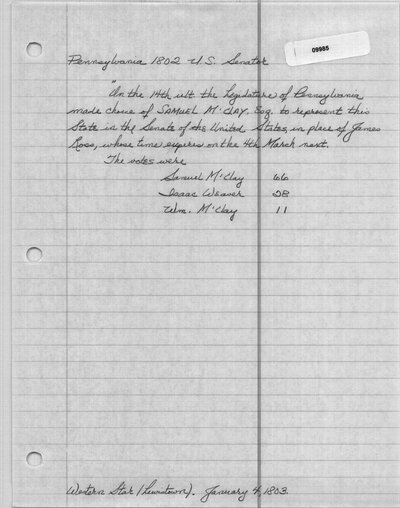 09985
Pennsylvania 1802 U.S. Senator
"On the 14th ult the legislature of Pennsylvania
made choice of SAMUEL McCLAY, Esq. to represent this
State in the Senate of the United States, in place of James
Ross, whose time expires on the 4th March next.
The votes were
Samuel McClay 66
Isaac Weaver 28
Wm. McClay 11
Western Star (Lewistown). January 4, 1803.